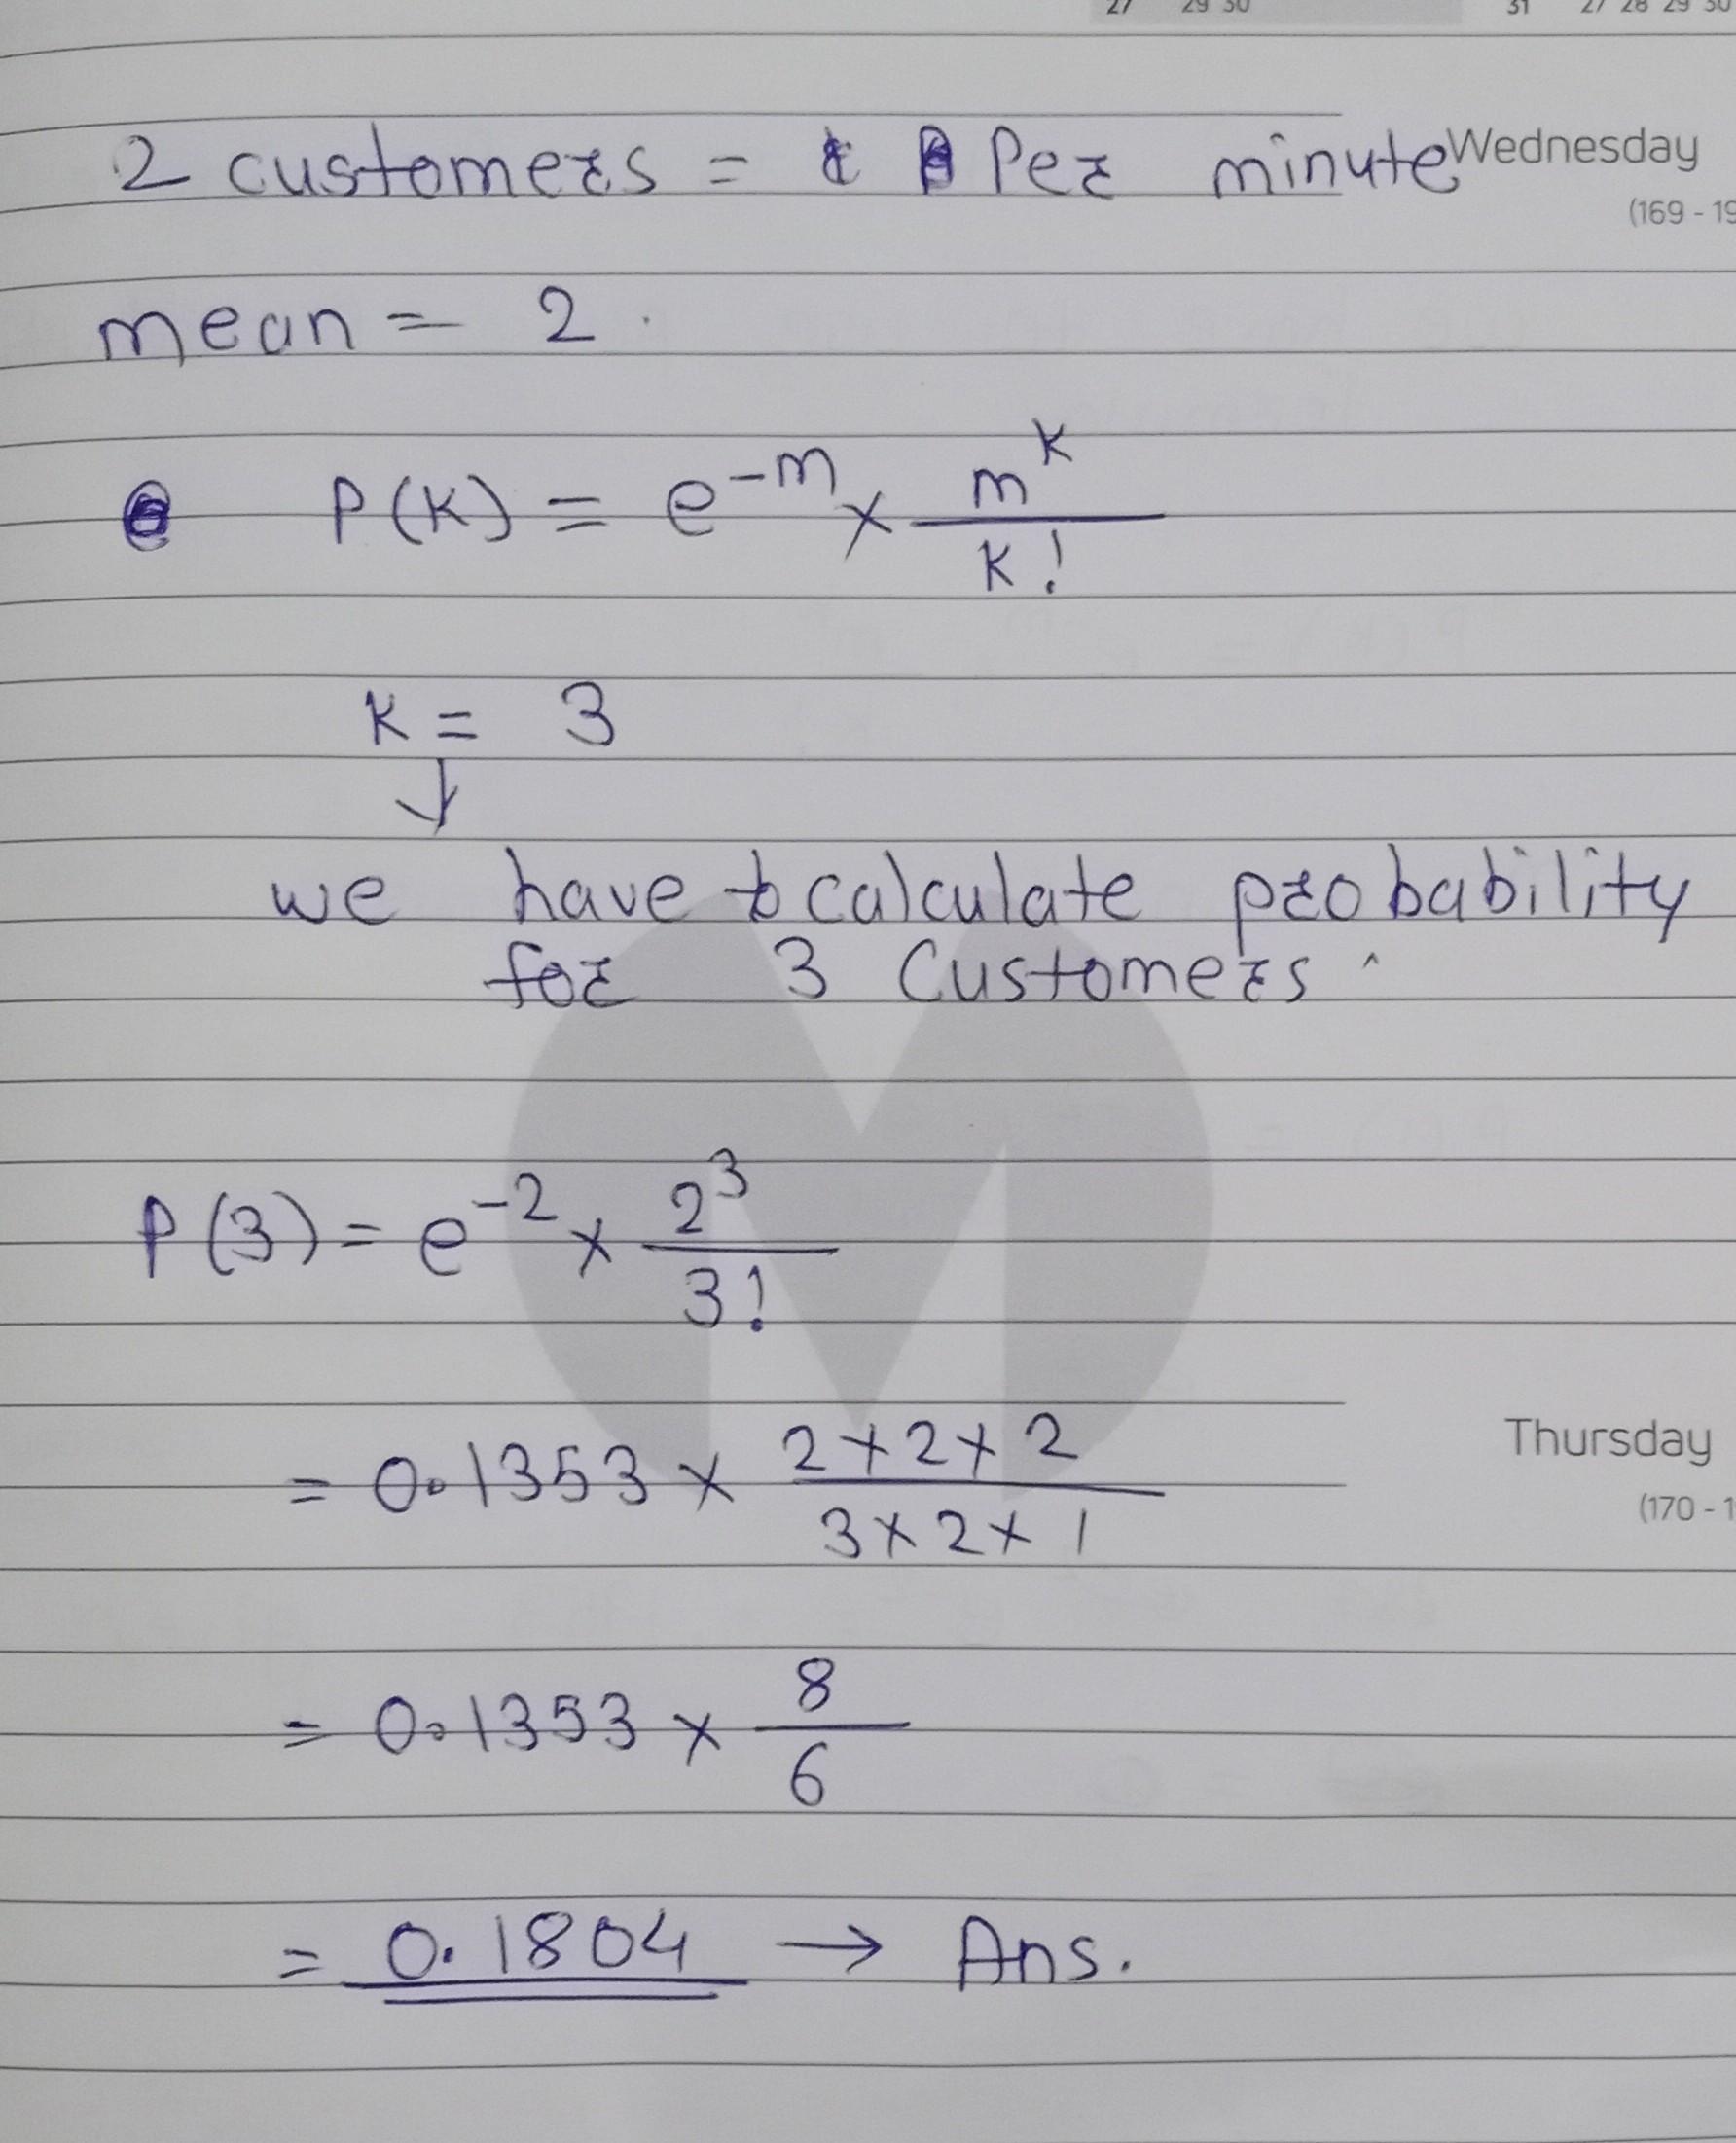 27 29 30 31 27 28 29 30
2 customers = Per minute Wednesday
(169 - 19
mean = 2.
P(K) = e^-m × m^K / K!
K = 3
↓
we have to calculate probability
for 3 Customers.
P(3) = e^-2 × 2^3 / 3!
= 0.1353 × 2×2×2 / 3×2×1
Thursday
(170 - 1
= 0.1353 × 8 / 6
= 0.1804 → Ans.